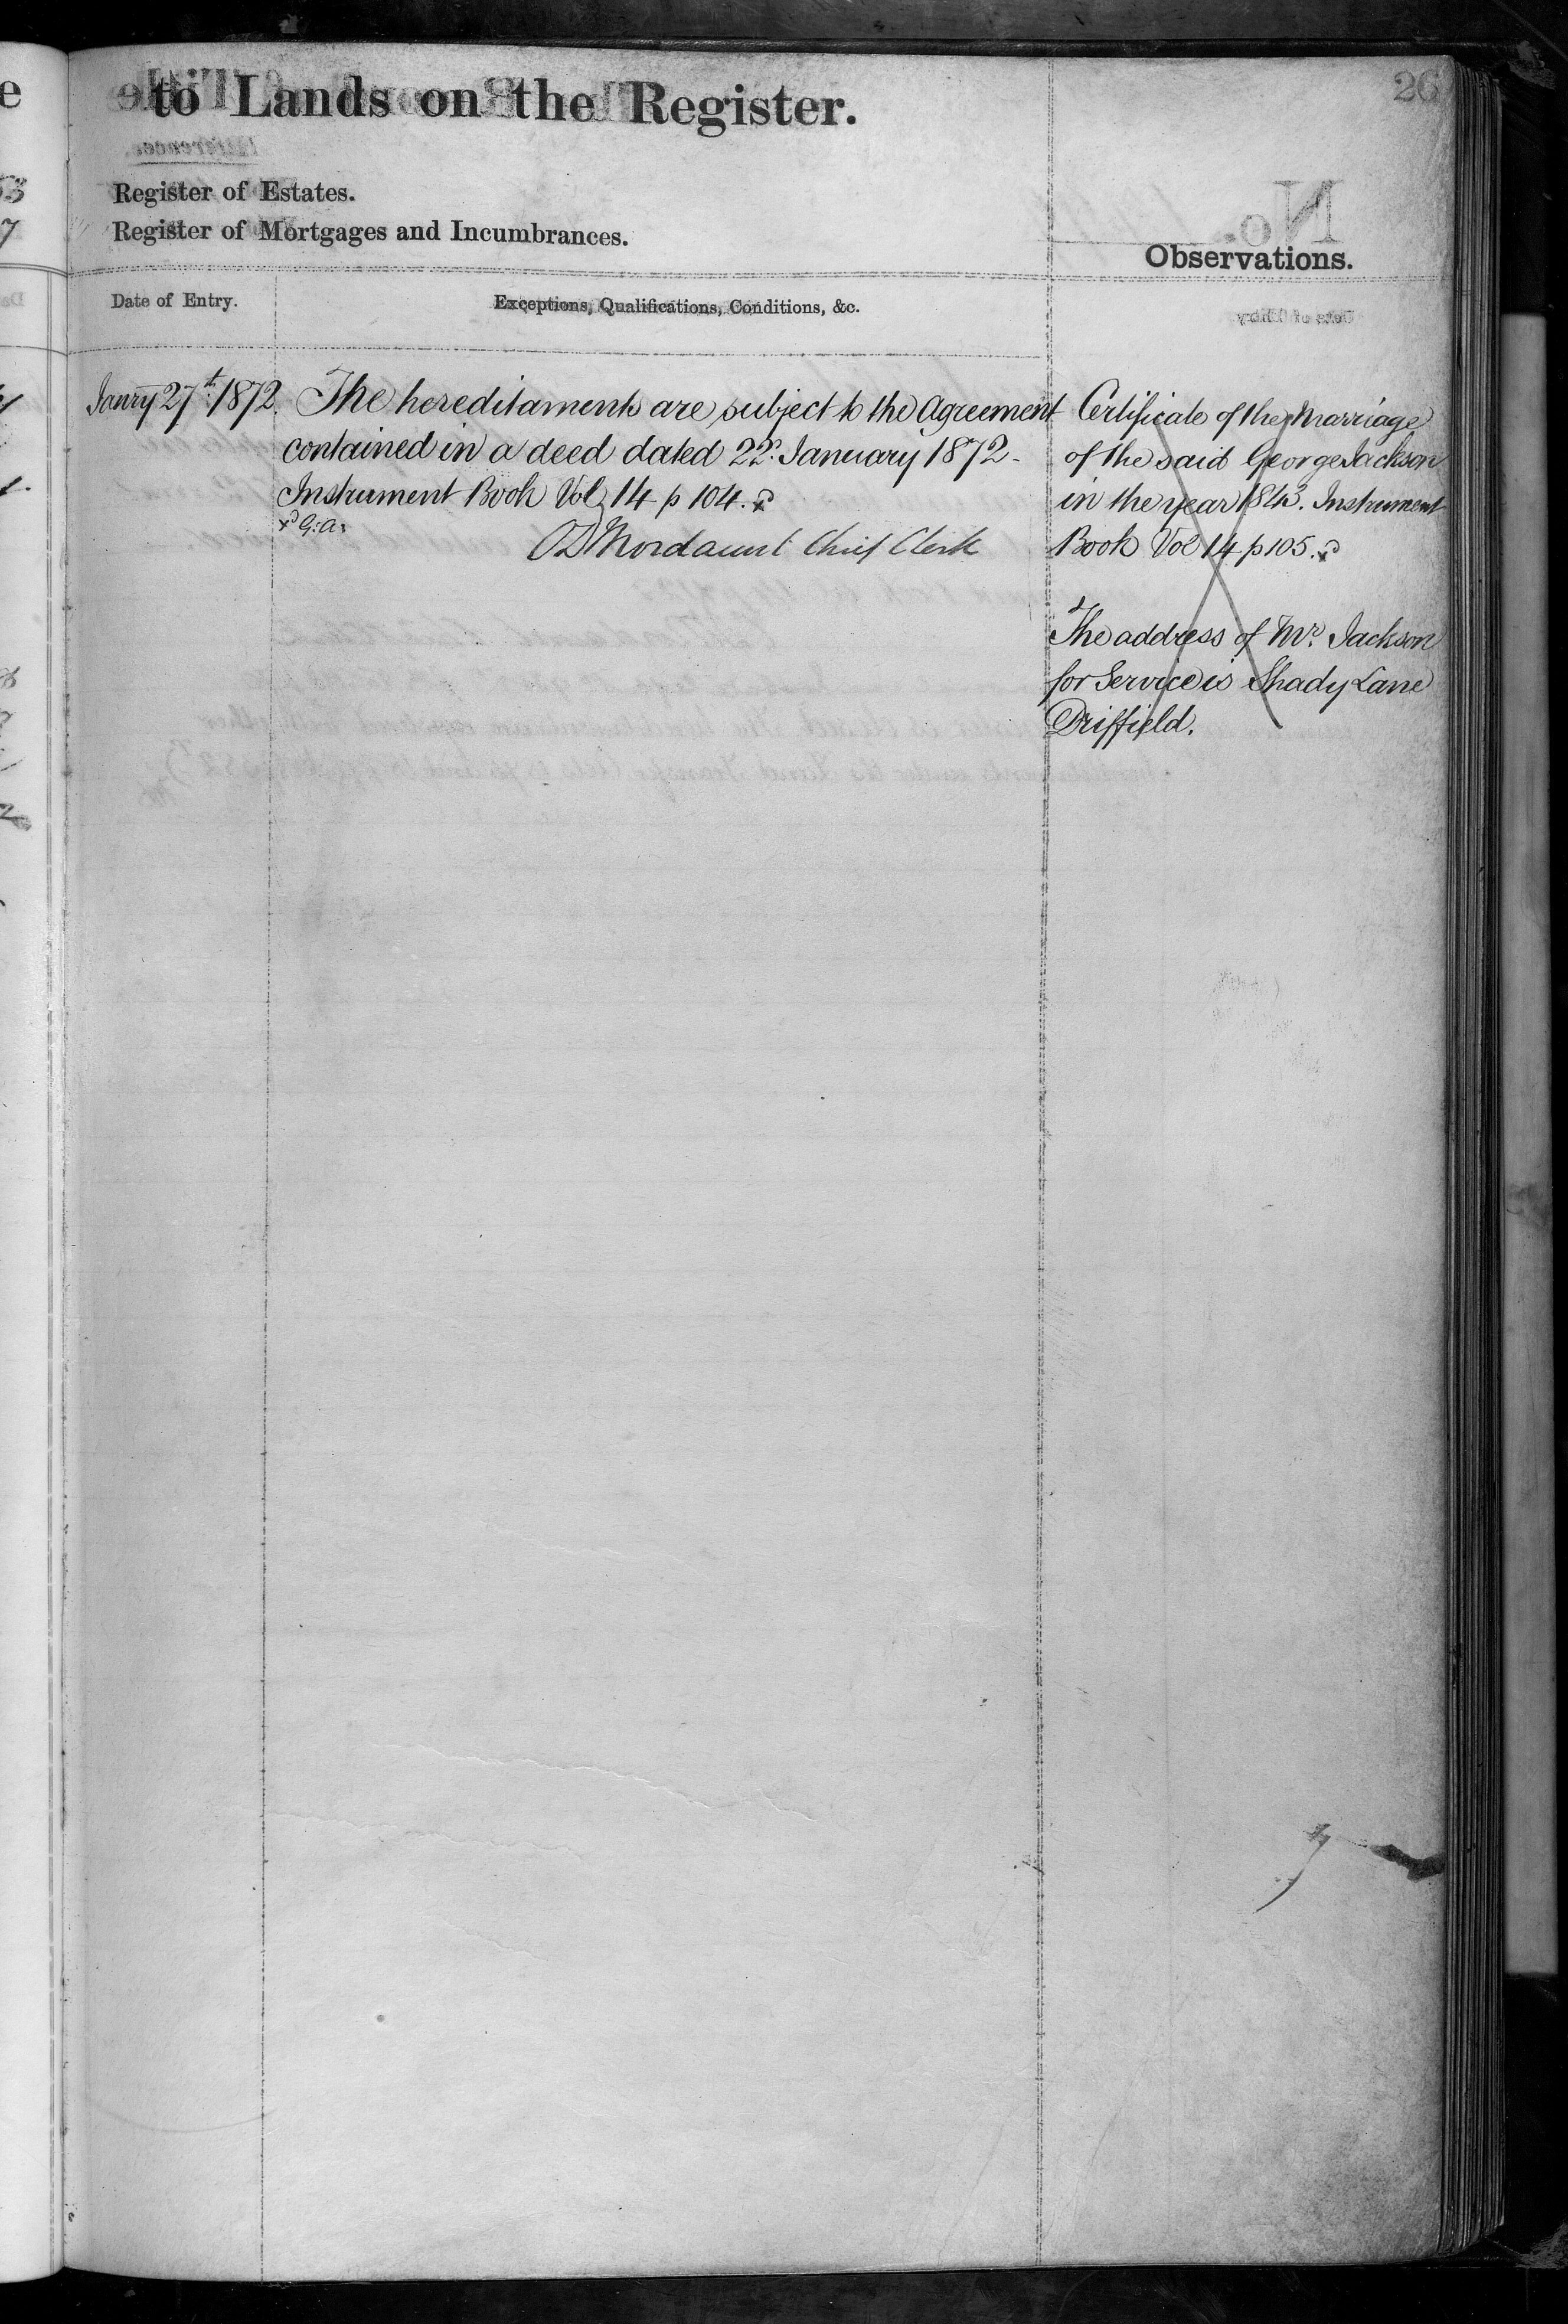 26
to Lands on the Register.
Register of Estates.
Register of Mortgages and Incumbrances.
Observations.
Date of Entry.
Exceptions, Qualifications, Conditions, &c.
Janry 27th 1872.
The hereditaments are subject to the Agreement
contained in a deed dated 22d January 1872 -
Instrument Book Vol 14 p 104. xd
xd G:A:
Mordaunt Chief Clerk
Certificate of the Marriage
of the said George Jackson
in the year Instrument
Book Vol 14 p 105. xd
The address of Mr. Jackson
for Service is Shady Lane
Driffield.